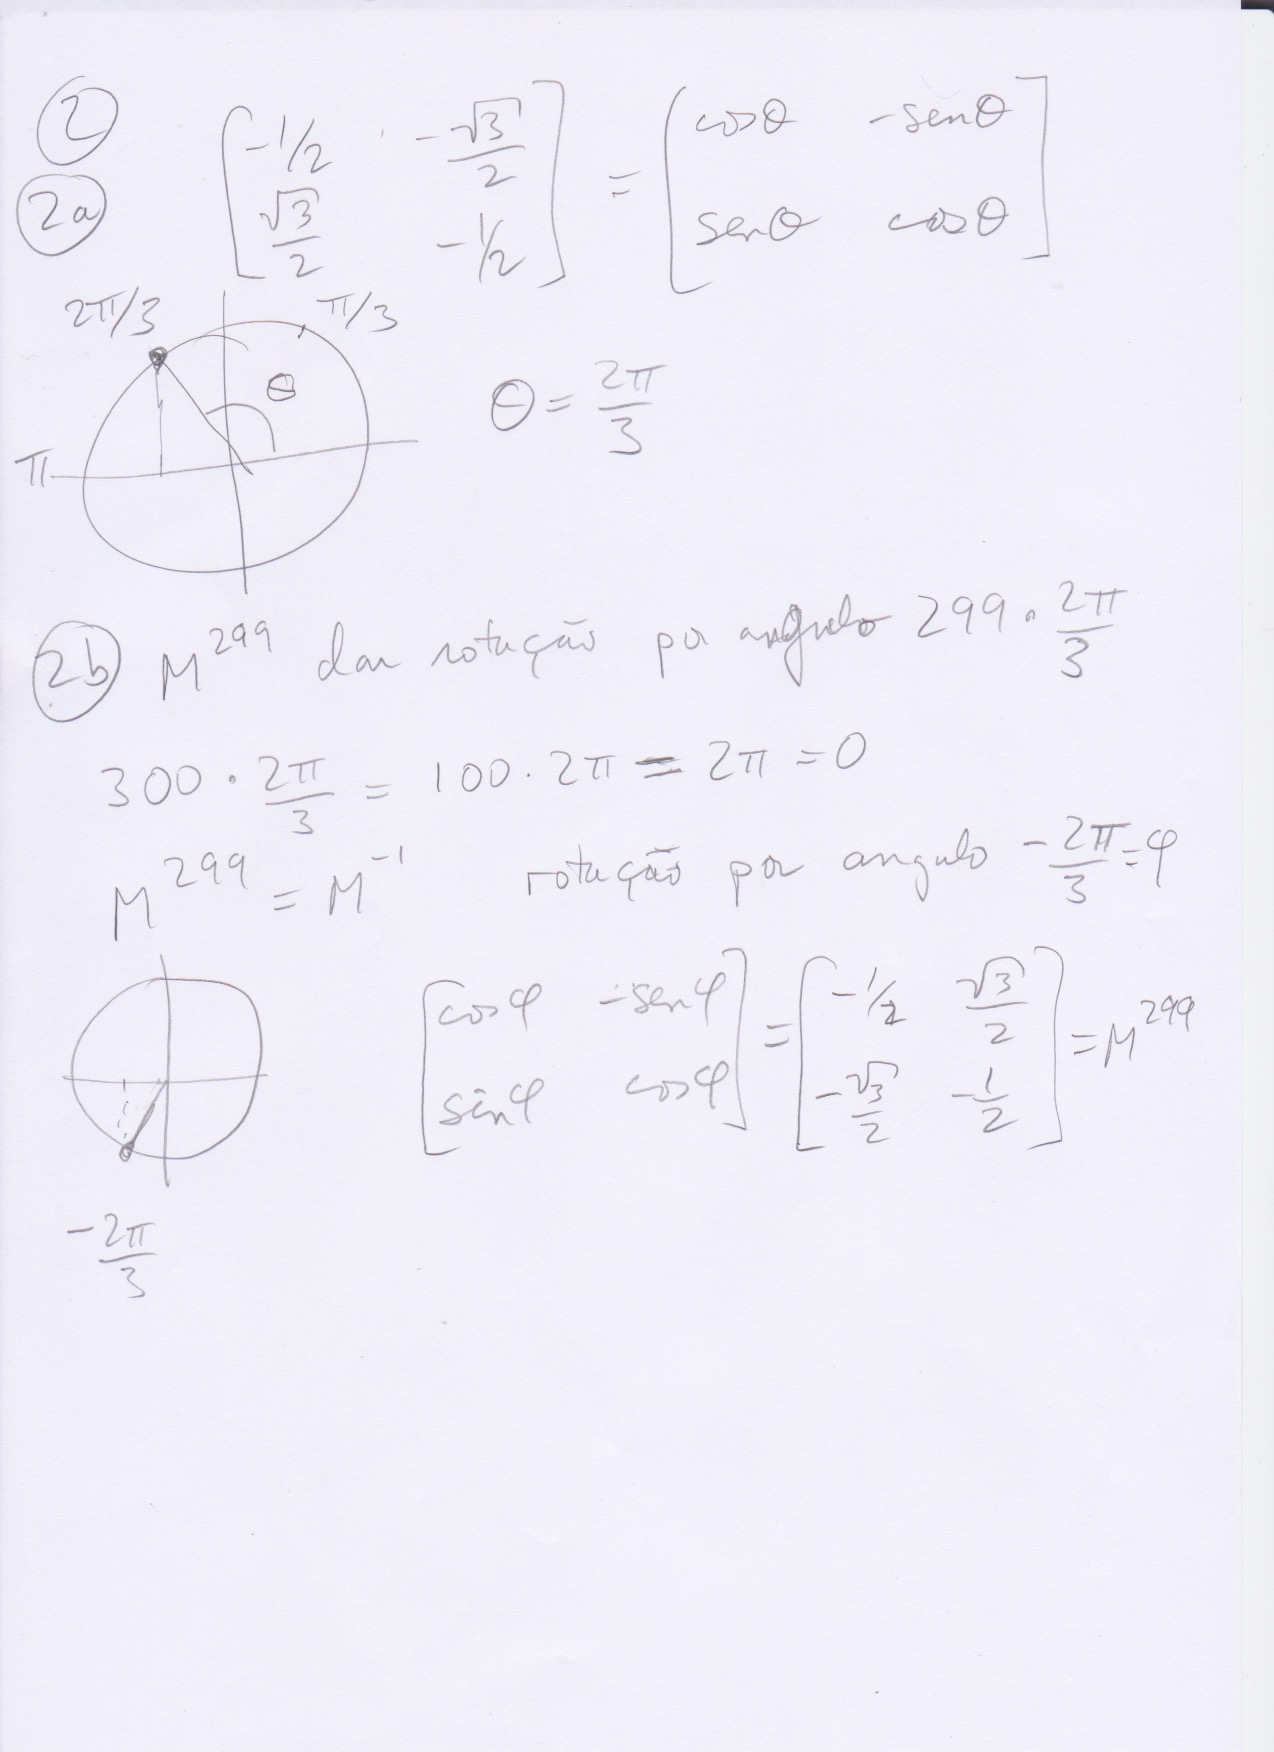 2
2a
[ -1/2 -√3/2 ; √3/2 -1/2 ] = [ cosθ -senθ ; senθ cosθ ]
2π/3 π/3
θ
π
θ = 2π/3
2b M^299 dar rotação por angulo 299 · 2π/3
300 · 2π/3 = 100 · 2π = 2π = 0
M^299 = M^-1 rotação por angulo -2π/3 = φ
[ cosφ -senφ ; sinφ cosφ ] = [ -1/2 √3/2 ; -√3/2 -1/2 ] = M^299
-2π/3